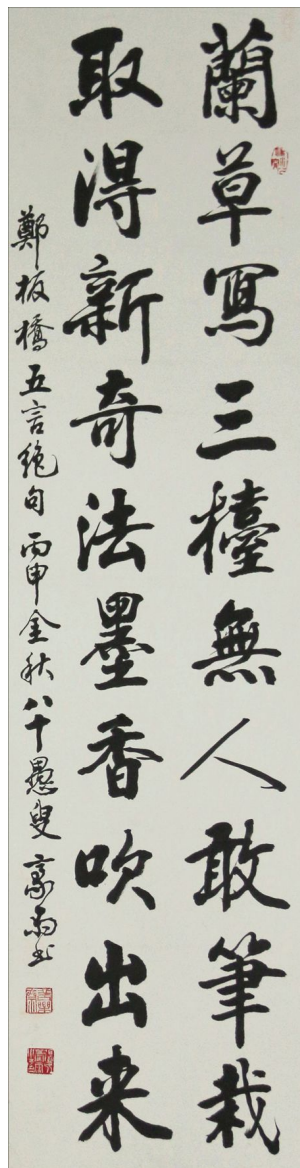 蘭草寫三檯無人敢筆栽
取得新奇法墨香吹出来
鄭板橋五言絶句丙申金秋八十愚叟豪南书